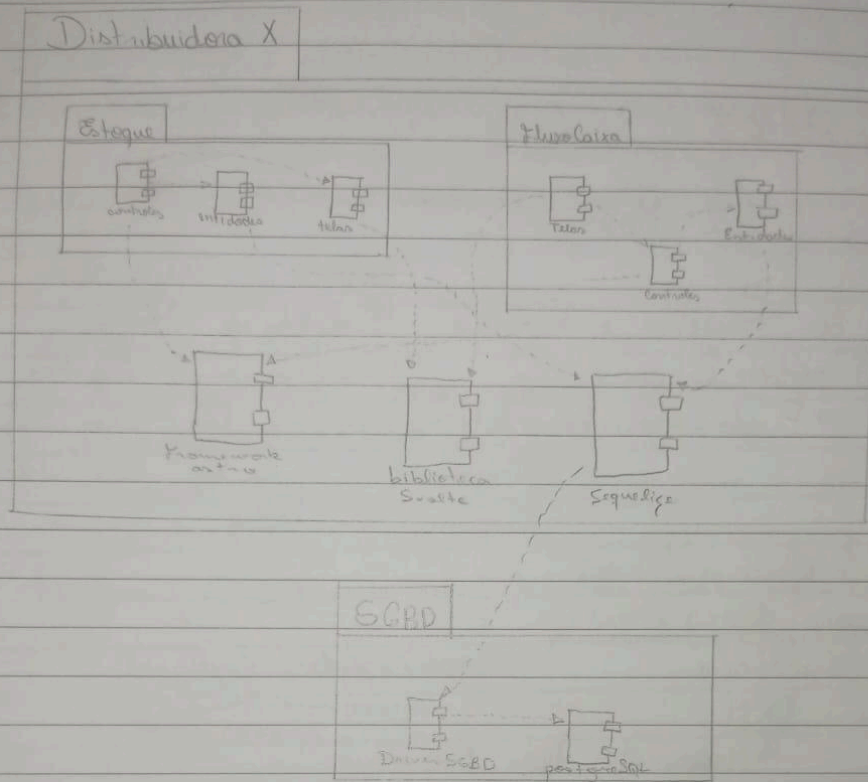 Distribuidora X
Estoque
FluxoCaixa
controles
entidades
telas
Telas
Entidades
Controles
Framework
astro
biblioteca
Svelte
Sequelize
SGBD
Driver SGBD
postgreSQL